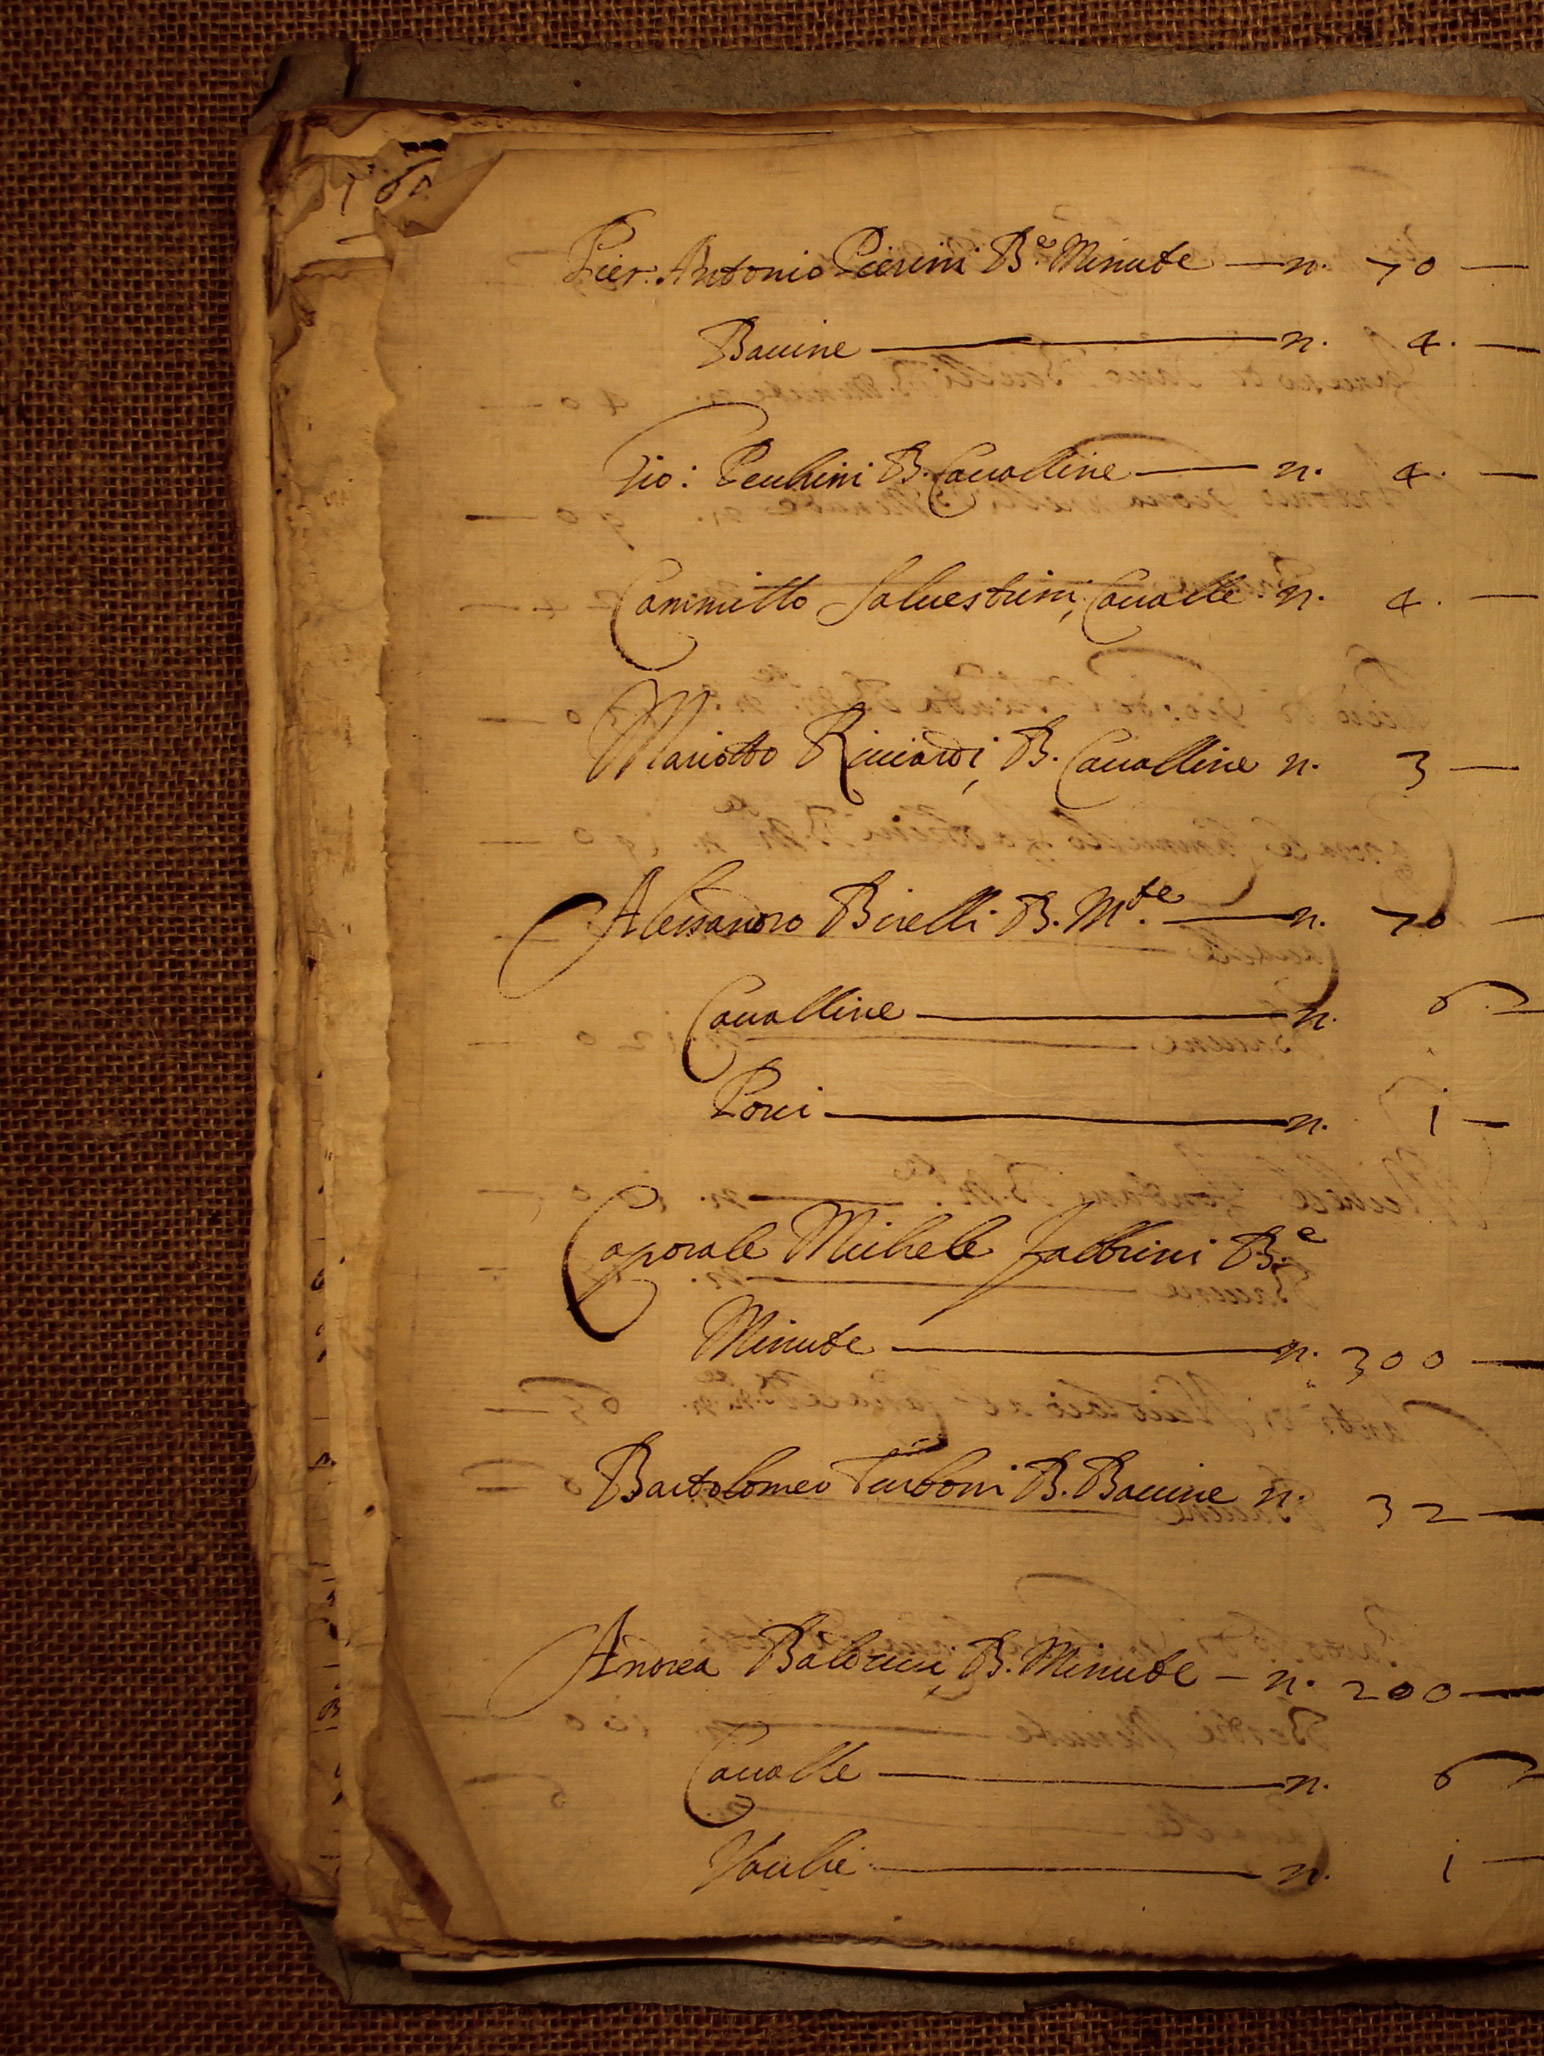 Pier. Antonio Pierini B.e Minute — n. 70 —
Bauine — n. 4. —
Gio: Pecchini B. Cavalline — n. 4. —
Cammillo Saluestrini, Caualle n. 4. —
Mariotto Ricciardi, B. Caualline n. 3 —
Alessandro Birelli B. M.te — n. 70 —
Caualline — n. 6. —
Porci — n. 1 —
Caporale Michele Fabbrini B.e
Minute — n. 300 —
Bartolomeo Turboni B. Bauine n. 32 —
Andrea Balducci, B. Minute — n. 200 —
Caualle — n. 6 —
Vacche — n. 1 —